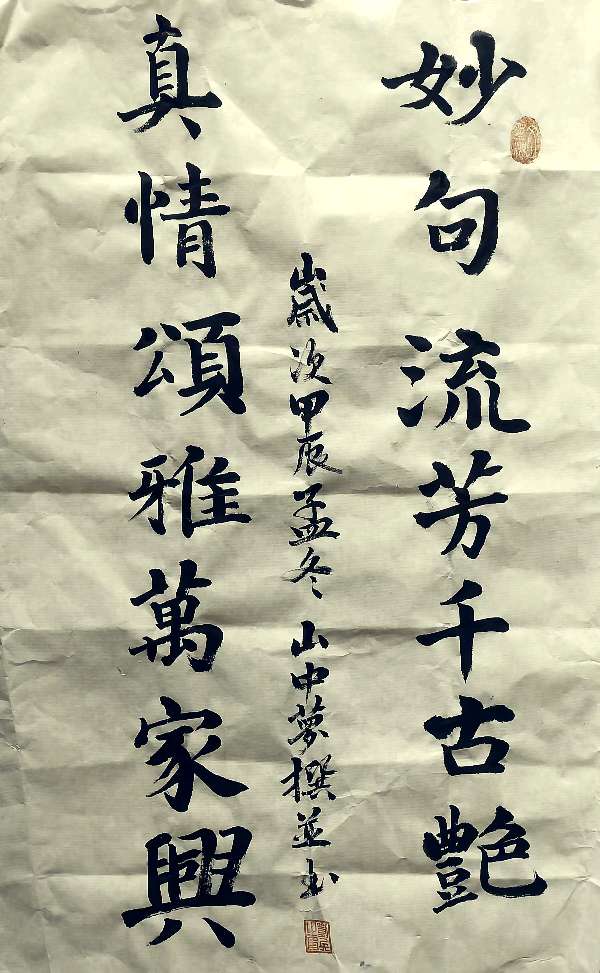 妙句流芳千古艷
真情頌雅萬家興
歲次甲辰孟冬山中夢撰並书